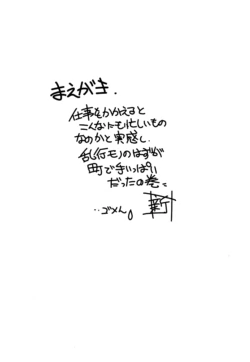 まえがき.
仕事をかかえると
こんなにも忙しいもの
なのかと実感し.
乱行モノのはずが
町で手いっぱい
だったの巻。
‥ゴメん。
新